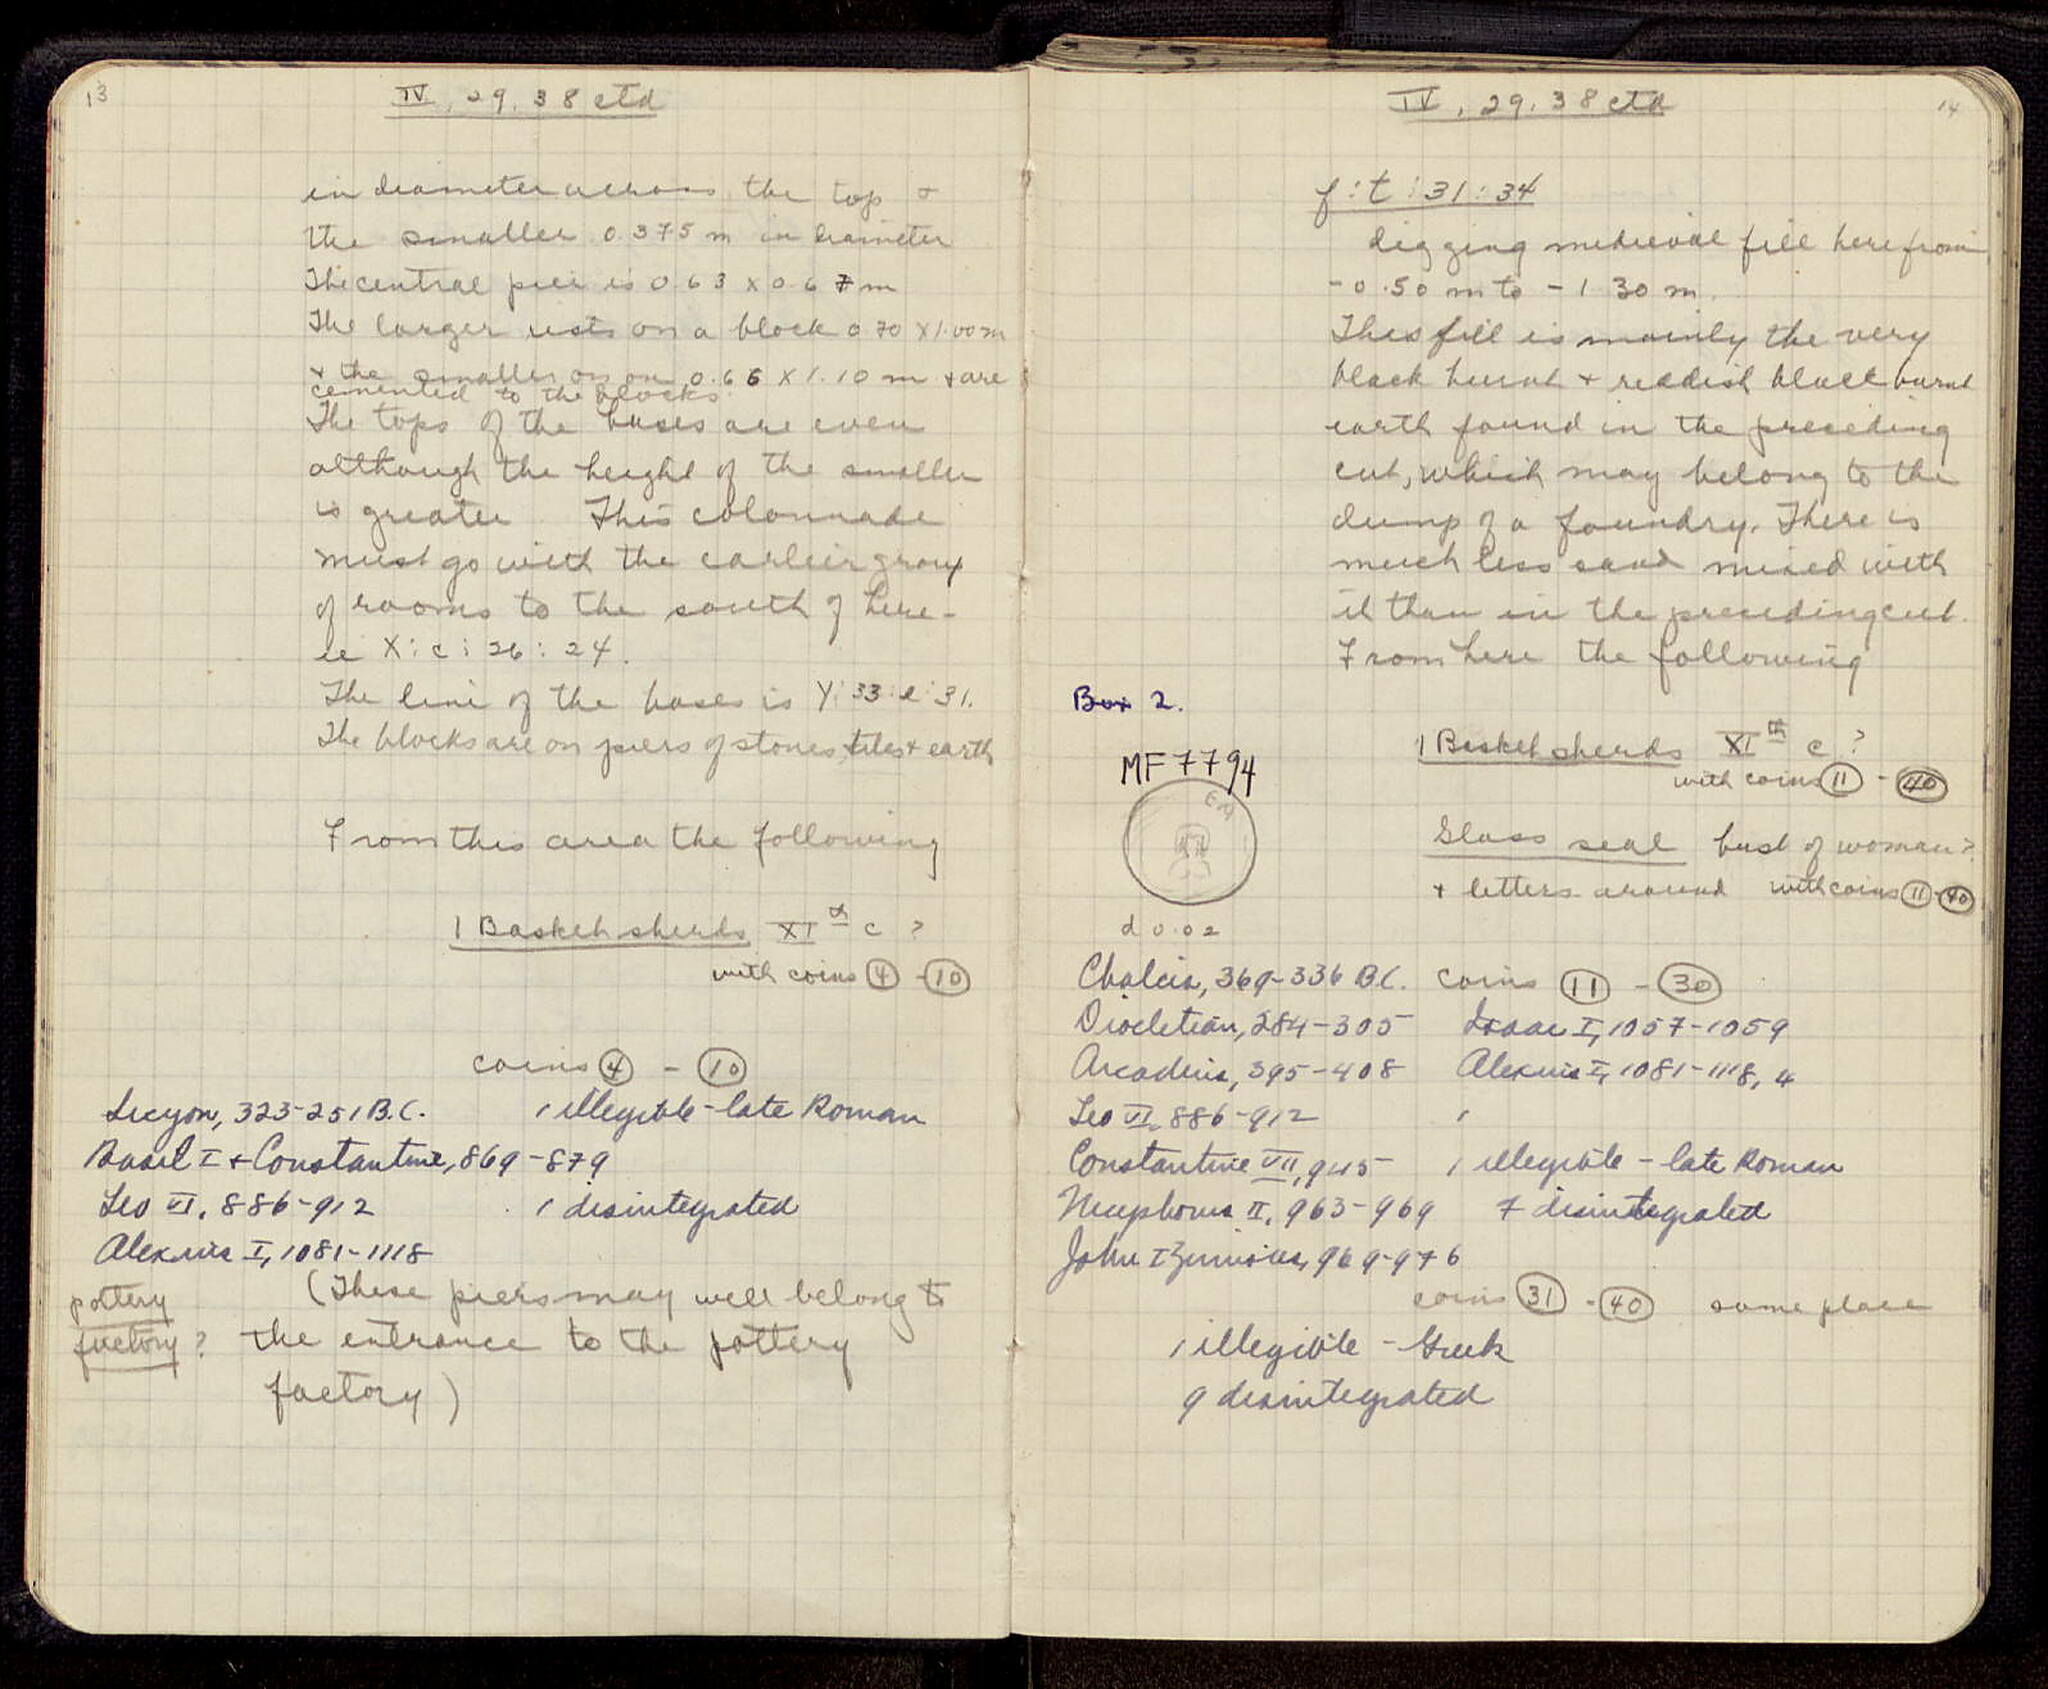 13
IV. 29. 38 ctd
in diameter across the top +
the smaller 0.375 m in diameter
The central pier is 0.63 x 0.67 m
The larger rests on a block 0.70 x 1.00 m
+ the smaller on one 0.66 x 1.10 m + are
cemented to the blocks.
The tops of the bases are even
although the height of the smaller
is greater This colonnade
must go with the earlier group
of rooms to the south of here -
ie X : c : 26 : 24.
The line of the bases is Y : 33 : e : 31.
The blocks are on piers of stones, tiles + earth
From this area the following
1 Basket sherds XIth c ?
with coins 4 - 10
coins 4 - 10
Sicyon, 323-251 B.C. 1 illegible - late Roman
Basil I + Constantine, 869-879
Leo VI, 886-912 1 disintegrated
Alexius I, 1081-1118
pottery
factory ?
(These piers may well belong to
the entrance to the pottery
factory)
14
IV. 29. 38 ctd
f : t : 31 : 34
digging medieval fill here from
- 0.50 m to - 1.30 m.
This fill is mainly the very
black burnt + reddish black burnt
earth found in the preceding
cut, which may belong to the
dump of a foundry. There is
much less sand mixed with
it than in the preceding cut.
From here the following
Box 2.
1 Basket sherds XIth c ?
with coins 11 - 40
MF 7794
d 0.02
Glass seal bust of woman ?
+ letters around with coins 11 - 40
Chalcis, 369-336 B.C. coins 11 - 30
Diocletian, 284-305 Isaac I, 1057-1059
Arcadius, 395-408 Alexius I, 1081-1118, 4
Leo VI, 886-912
Constantine VII, 945 1 illegible - late Roman
Nicephorus II, 963-969 7 disintegrated
John I Zimisces, 969-976
coins 31 - 40 same place
1 illegible - Greek
9 disintegrated